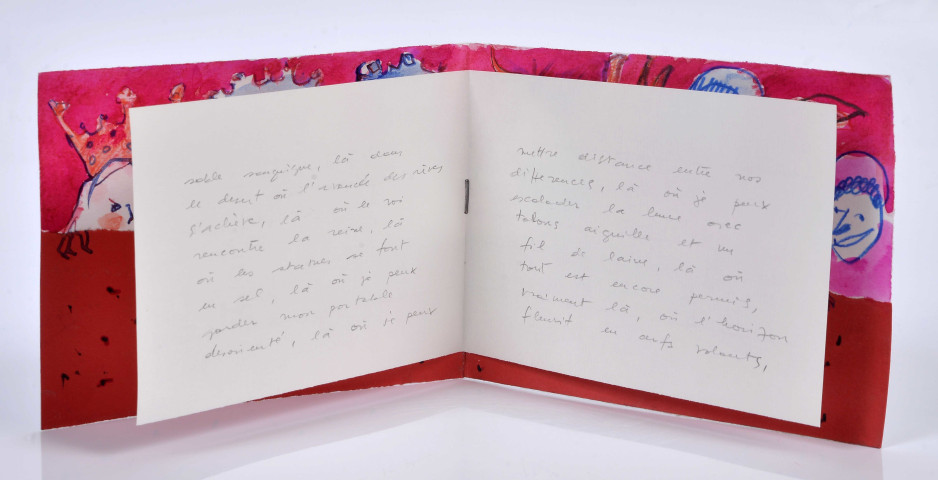 sable sanguigne, là dans
le desert où l'avancée des rêves
s'achève, là où le roi
rencontre la reine, là
où les statues se font
en sel, là où je peux
garder mon portable
desorienté, là où je peux
mettre distance entre nos
differences, là où je peux
escalader la lune avec
talons aiguille et un
fil de laine, là où
tout est encore permis,
vraiment là, où l'horizon
fleurit en œufs volants,